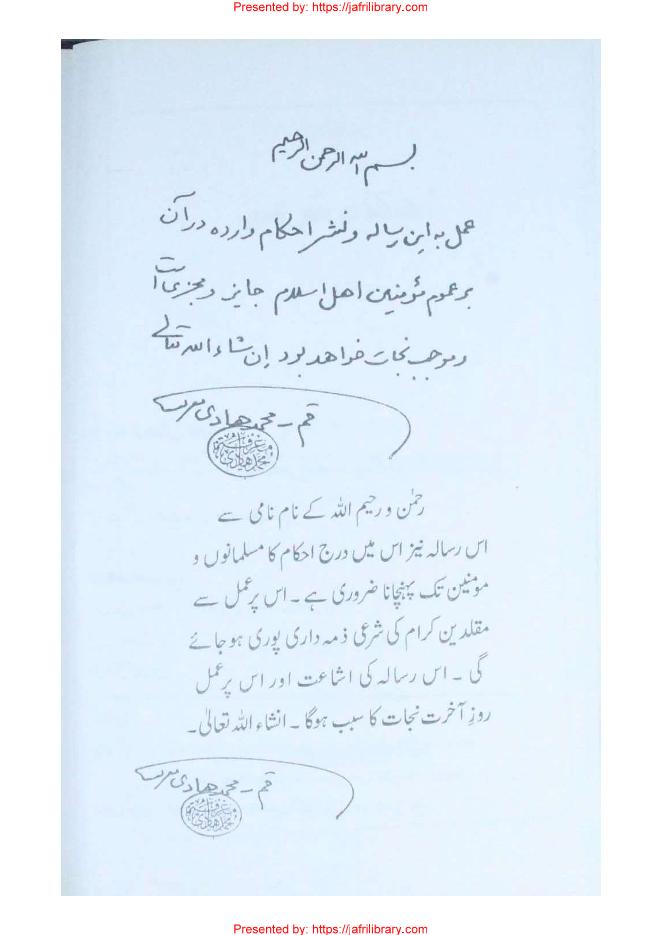 Presented by: https://jafrilibrary.com
بسم الله الرحمن الرحیم
عمل به این رساله و نشر احکام وارده در آن
بر عموم مؤمنین اهل اسلام جایز و مجزی است
و موجب نجات خواهد بود إن شاء الله تعالی
قم - محمد هادی
رحمٰن و رحیم اللہ کے نام نامی سے
اس رسالہ نیز اس میں درج احکام کا مسلمانوں و
مومنین تک پہنچانا ضروری ہے ۔ اس پر عمل سے
مقلدین کرام کی شرعی ذمہ داری پوری ہو جائے
گی ۔ اس رسالہ کی اشاعت اور اس پر عمل
روزِ آخرت نجات کا سبب ہوگا ۔ انشاء اللہ تعالیٰ۔
قم - محمد هادی
Presented by: https://jafrilibrary.com